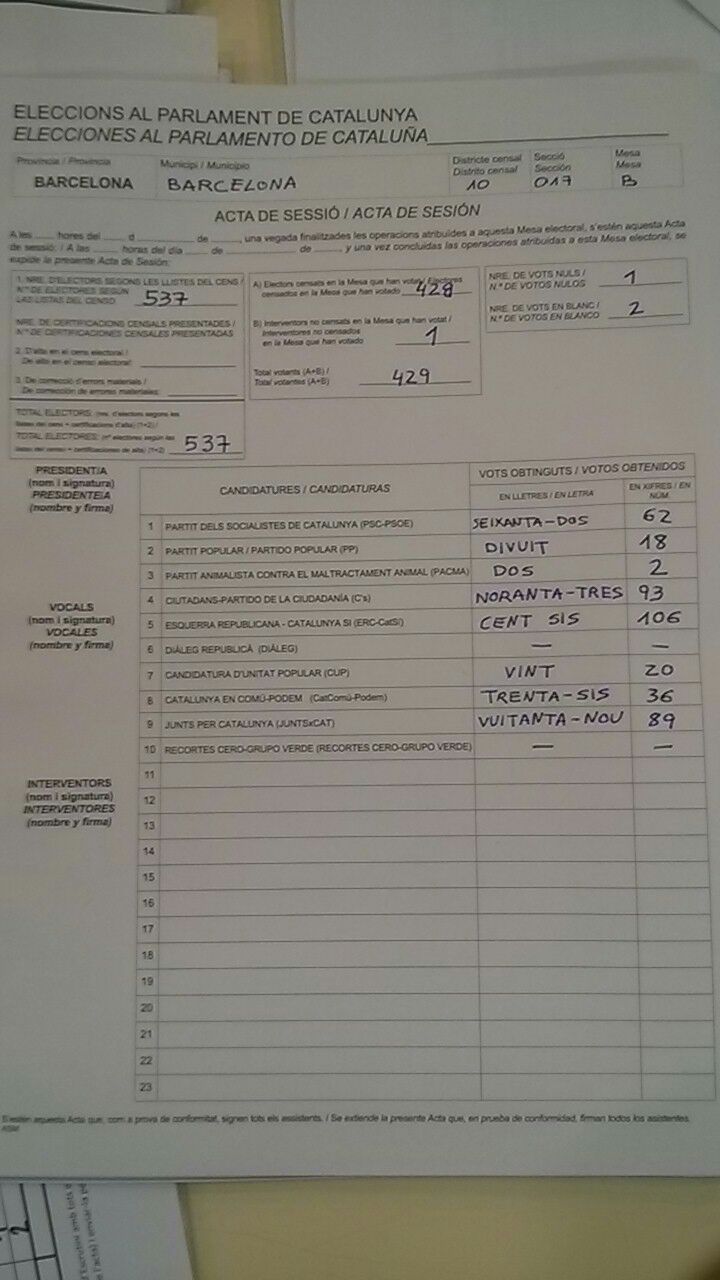 ELECCIONS AL PARLAMENT DE CATALUNYA
ELECCIONES AL PARLAMENTO DE CATALUÑA
Província / Provincia Municipi / Municipio Districte censal Secció Mesa
Distrito censal Sección Mesa
BARCELONA BARCELONA 10 017 B
ACTA DE SESSIÓ / ACTA DE SESIÓN
A les ...... hores del ...... d ............ de ......, una vegada finalitzades les operacions atribuïdes a aquesta Mesa electoral, s'estén aquesta Acta
de sessió: / A las ...... horas del día ...... de ............ de ......, y una vez concluidas las operaciones atribuidas a esta Mesa electoral, se
expide la presente Acta de Sesión:
1. NRE. D'ELECTORS SEGONS LES LLISTES DEL CENS /
N.º DE ELECTORES SEGÚN
LAS LISTAS DEL CENSO 537
NRE. DE CERTIFICACIONS CENSALS PRESENTADES /
N.º DE CERTIFICACIONES CENSALES PRESENTADAS
2. D'alta en el cens electoral /
De alta en el censo electoral:
3. De correcció d'errors materials /
De corrección de errores materiales:
TOTAL ELECTORS: (nre. d'electors segons les
llistes del cens + certificacions d'alta) (1+2) /
TOTAL ELECTORES: (nº electores según las
listas del censo + certificaciones de alta) (1+2) 537
A) Electors censats en la Mesa que han votat / Electores
censados en la Mesa que han votado 428
B) Interventors no censats en la Mesa que han votat /
Interventores no censados
en la Mesa que han votado 1
Total votants (A+B) /
Total votantes (A+B) 429
NRE. DE VOTS NULS /
N.º DE VOTOS NULOS 1
NRE. DE VOTS EN BLANC /
N.º DE VOTOS EN BLANCO 2
PRESIDENT/A
(nom i signatura)
PRESIDENTE/A
(nombre y firma)
VOCALS
(nom i signatura)
VOCALES
(nombre y firma)
INTERVENTORS
(nom i signatura)
INTERVENTORES
(nombre y firma)
CANDIDATURES / CANDIDATURAS VOTS OBTINGUTS / VOTOS OBTENIDOS
EN LLETRES / EN LETRA EN XIFRES / EN NÚM.
1 PARTIT DELS SOCIALISTES DE CATALUNYA (PSC-PSOE) SEIXANTA-DOS 62
2 PARTIT POPULAR / PARTIDO POPULAR (PP) DIVUIT 18
3 PARTIT ANIMALISTA CONTRA EL MALTRACTAMENT ANIMAL (PACMA) DOS 2
4 CIUTADANS-PARTIDO DE LA CIUDADANÍA (C's) NORANTA-TRES 93
5 ESQUERRA REPUBLICANA - CATALUNYA SI (ERC-CatSí) CENT SIS 106
6 DIÀLEG REPUBLICÀ (DIÀLEG) — —
7 CANDIDATURA D'UNITAT POPULAR (CUP) VINT 20
8 CATALUNYA EN COMÚ-PODEM (CatComú-Podem) TRENTA-SIS 36
9 JUNTS PER CATALUNYA (JUNTSxCAT) VUITANTA-NOU 89
10 RECORTES CERO-GRUPO VERDE (RECORTES CERO-GRUPO VERDE) — —
11
12
13
14
15
16
17
18
19
20
21
22
23
S'estén aquesta Acta que, com a prova de conformitat, signen tots els assistents. / Se extiende la presente Acta que, en prueba de conformidad, firman todos los asistentes.